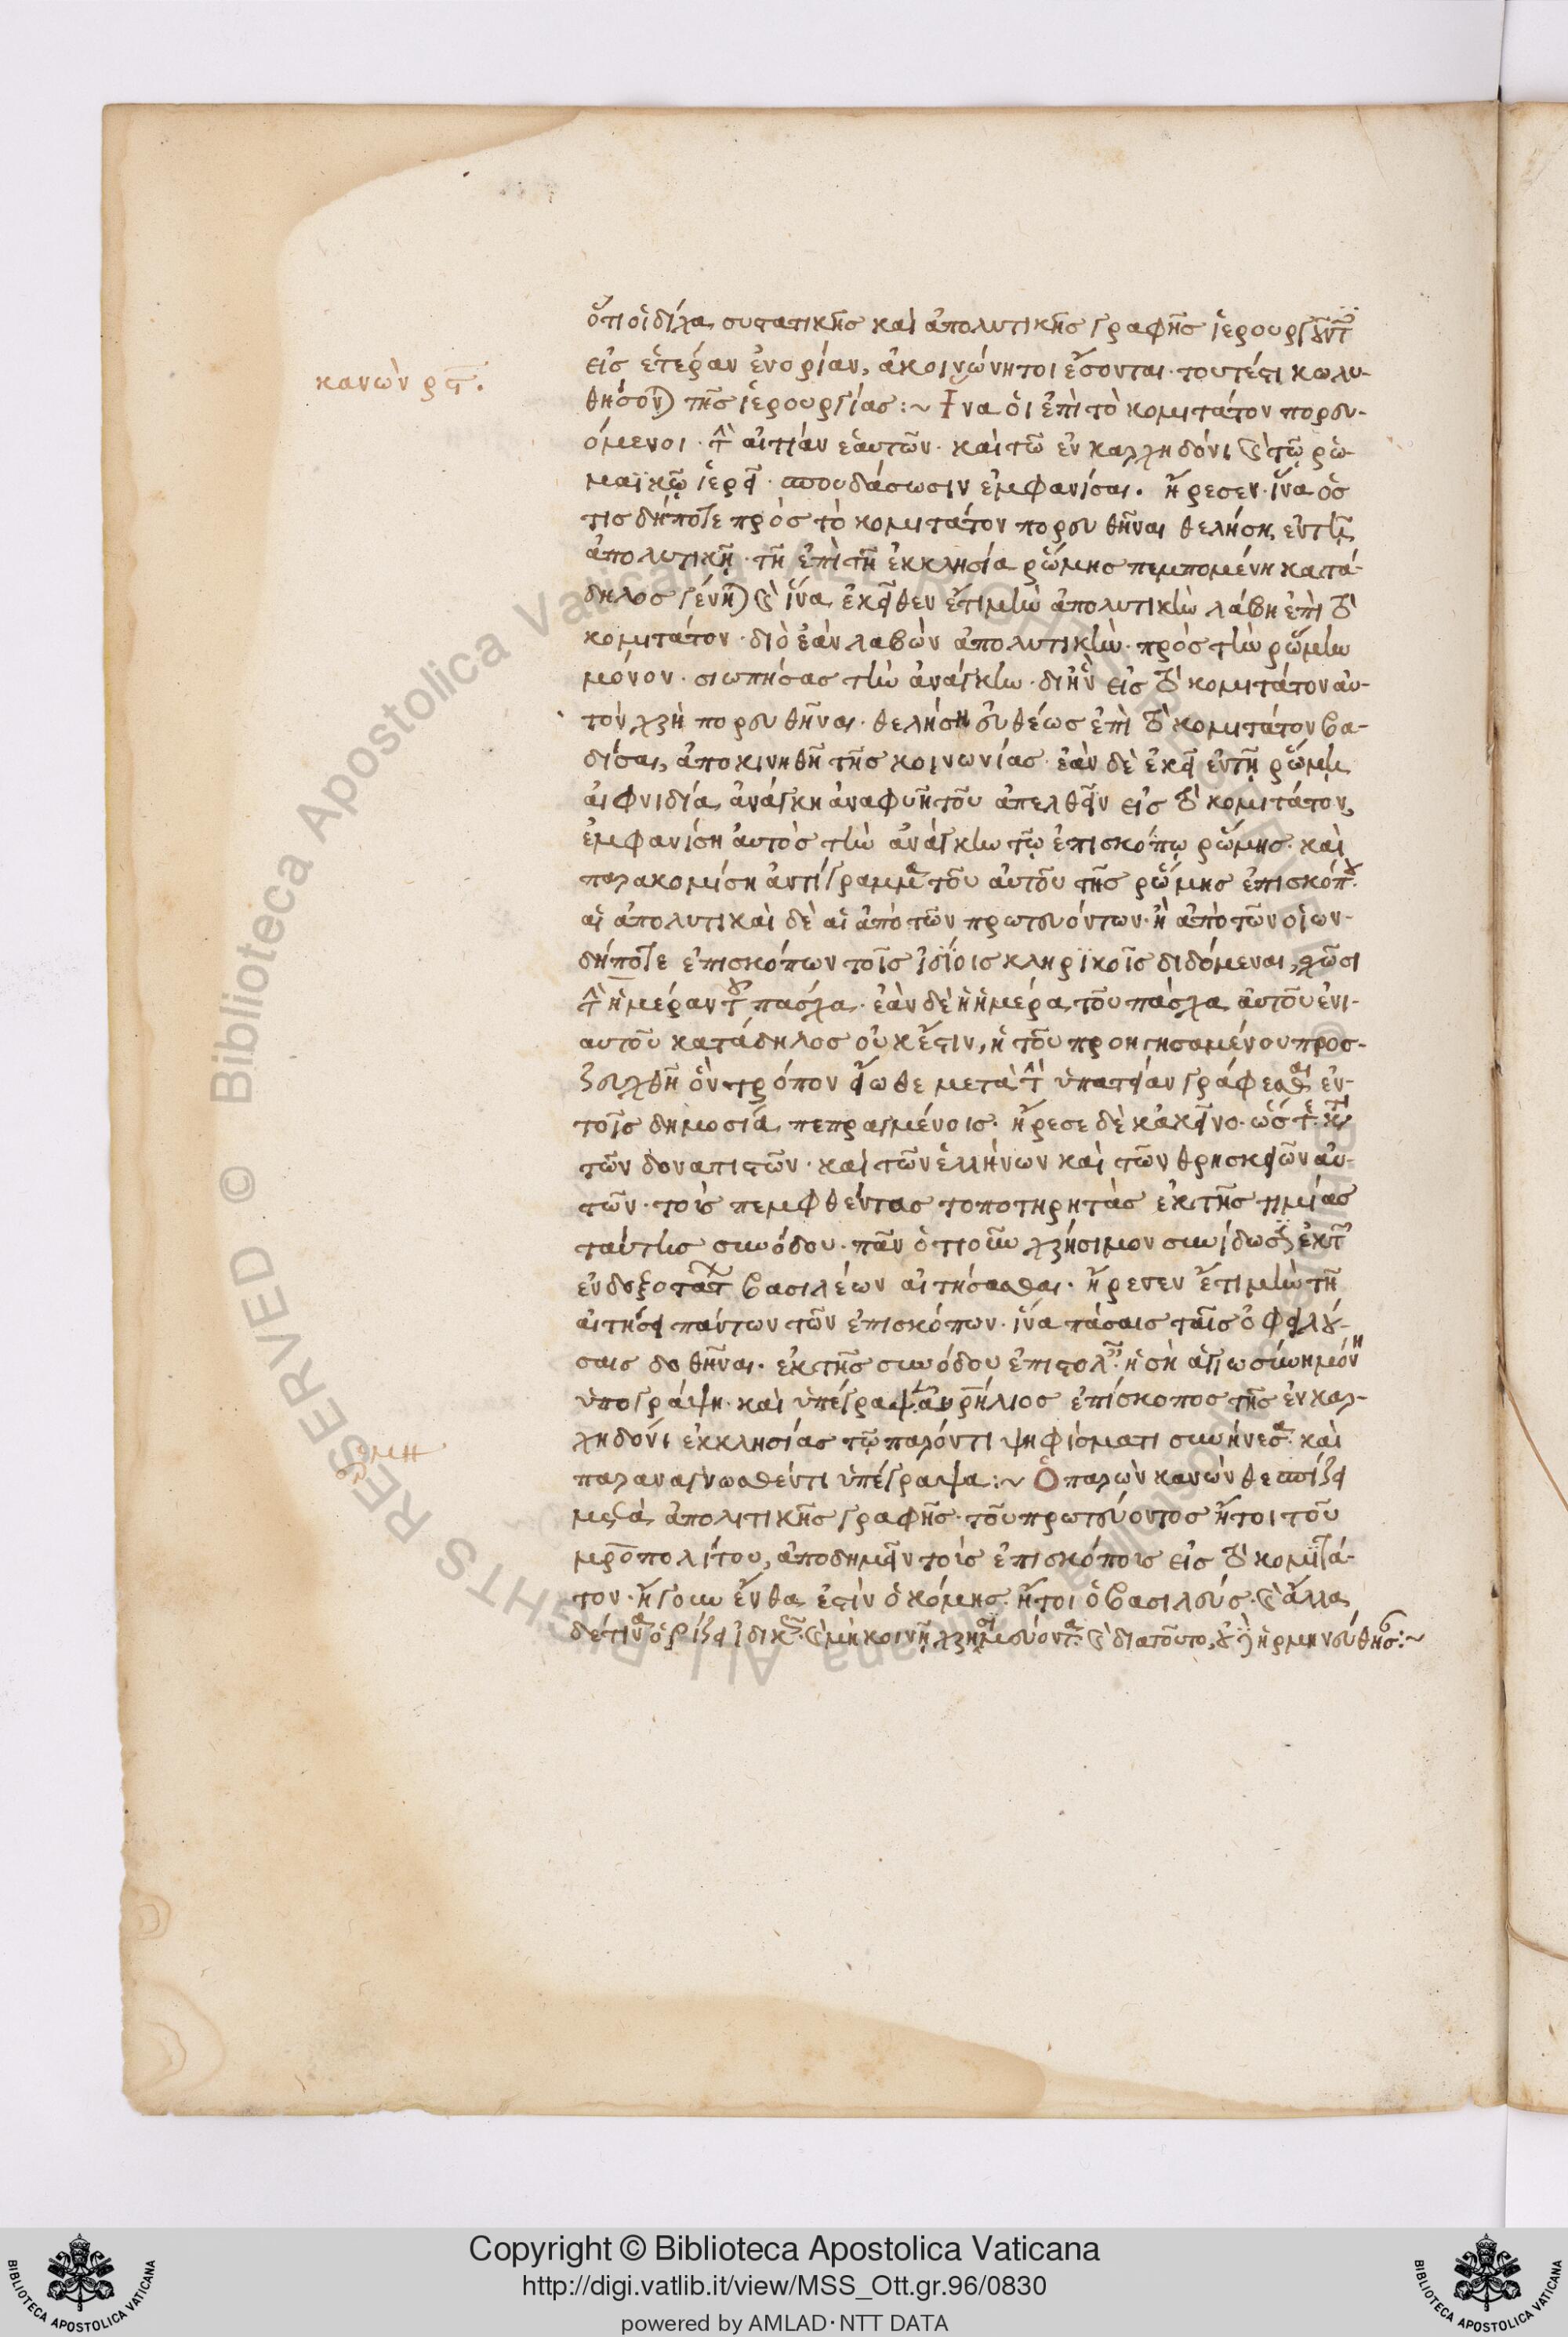 ὅτι οἱ δίχα συστατικῆς καὶ ἀπολυτικῆς γραφῆς ἱερουργοῦντες
εἰς ἑτέραν ἐνορίαν, ἀκοινώνητοι ἔσονται· τουτέστι κωλυ-
κανὼν ρϛ.
θήσονται τῆς ἱερουργίας:~ Ἵνα οἱ ἐπὶ τὸ κομιτάτον πορευ-
όμενοι· τὴν αἰτίαν ἑαυτῶν· καὶ τῶ ἐν καλχηδόνι καὶ τῷ ῥω-
μαϊκῷ ἱερεῖ· σπουδάσωσιν ἐμφανίσαι. ἤρεσεν· ἵνα ὅς
τις δήποτε πρὸς τὸ κομιτάτον πορευθῆναι θελήση, ἐν τῇ
ἀπολυτικῇ· τῆ ἐπὶ τῆ ἐκκλησία ῥώμης πεμπομένη κατά-
δηλος γένηται καὶ ἵνα ἐκεῖθεν ἔτι μὴν ἀπολυτικὴν λάβη ἐπὶ τὸ
κομιτάτον· διὸ ἐὰν λαβὼν ἀπολυτικὴν· πρὸς τὴν ῥώμην
μόνον· σιωπήσας τὴν ἀνάγκην· δι ἣν εἰς τὸ κομιτάτον αὐ-
τὸν χρὴ πορευθῆναι· θελήση εὐθέως ἐπὶ τὸ κομιτάτον βα-
δίσαι, ἀποκινηθῆ τῆς κοινωνίας· ἐὰν δὲ ἐκεῖ ἐν τῇ ῥώμῃ
αἰφνιδία ἀνάγκη ἀναφυῆ τοῦ ἀπελθεῖν εἰς τὸ κομιτάτον,
ἐμφανίση αὐτὸς τὴν ἀνάγκην τῷ ἐπισκόπῳ ῥώμης· καὶ
παρακομίση ἀντίγραμμα τοῦ αὐτοῦ τῆς ῥώμης ἐπισκόπου.
αἱ ἀπολυτικαὶ δὲ αἱ ἀπὸ τῶν πρωτευόντων· ἢ ἀπὸ τῶν οἱων-
δήποτε ἐπισκόπων τοῖς ἰδίοις κληρικοῖς διδόμεναι, χῶσι
τὴν ἡμέραν τοῦ πάσχα· ἐὰν δὲ ἡ ἡμέρα τοῦ πάσχα αὐτοῦ ἐνι-
αυτοῦ κατάδηλος οὐκ ἔστιν, ἡ τοῦ προηγησαμένου προσ-
ζευχθῆ ὃν τρόπον εἴωθε μετὰ τὴν ὑπατείαν γράφεσθαι ἐν
τοῖς δημοσία πεπραγμένοις· ἤρεσε δὲ κἀκεῖνο· ὥστε κατὰ
τῶν δονατιστῶν· καὶ τῶν ἑλλήνων καὶ τῶν θρησκειῶν αὐ-
τῶν· τοὺς πεμφθέντας τοποτηρητὰς ἐκ τῆς τιμίας
ταύτης συνόδου· πᾶν ὁτιοῦν χρήσιμον συνίδωσιν ἐκ τῶν
ἐνδοξοτάτων βασιλέων αἰτήσασθαι. ἤρεσεν ἔτι μὴν τῆ
αἰτήσει πάντων τῶν ἐπισκόπων· ἵνα πάσαις ταῖς ὀφειλού-
σαις δοθῆναι. ἐκ τῆς συνόδου ἐπιστολαῖς. ἡ σὴ ἁγιωσύνη μόνη
ὑπογράψη· καὶ ὑπέγραψεν· αὐρήλιος ἐπίσκοπος τῆς ἐν καλ-
χηδόνι ἐκκλησίας τῷ παρόντι ψηφίσματι συνήνεσα. καὶ
παραναγνωσθέντι ὑπέγραψα:~ Ὁ παρὼν κανὼν θεσπίζει
μετὰ ἀπολυτικῆς γραφῆς· τοῦ πρωτεύοντος ἤτοι τοῦ
μητροπολίτου, ἀποδημεῖν τοὺς ἐπισκόπους εἰς τὸ κομιτά-
τον· ἤγουν ἔνθα ἐστὶν ὁ κόμης· ἤτοι ὁ βασιλεύς. καὶ ἄλλα
δέ τινα ὁρίζει ἰδικῶς καὶ μὴ κοινῇ χρησιμεύοντα. καὶ διατοῦτο, οὐδὲ ἡρμηνεύθησαν:~